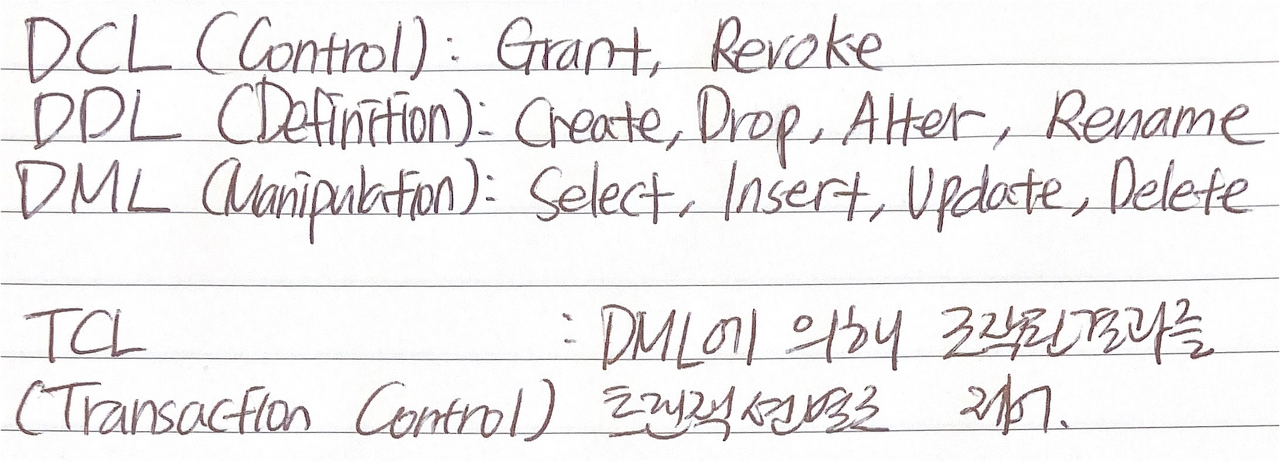 DCL (Control): Grant, Revoke
DDL (Definition): Create, Drop, Alter, Rename
DML (Manipulation): Select, Insert, Update, Delete
TCL : DML에 의해 조작된결과를
(Transaction Control) 트랜잭션별로 제어.